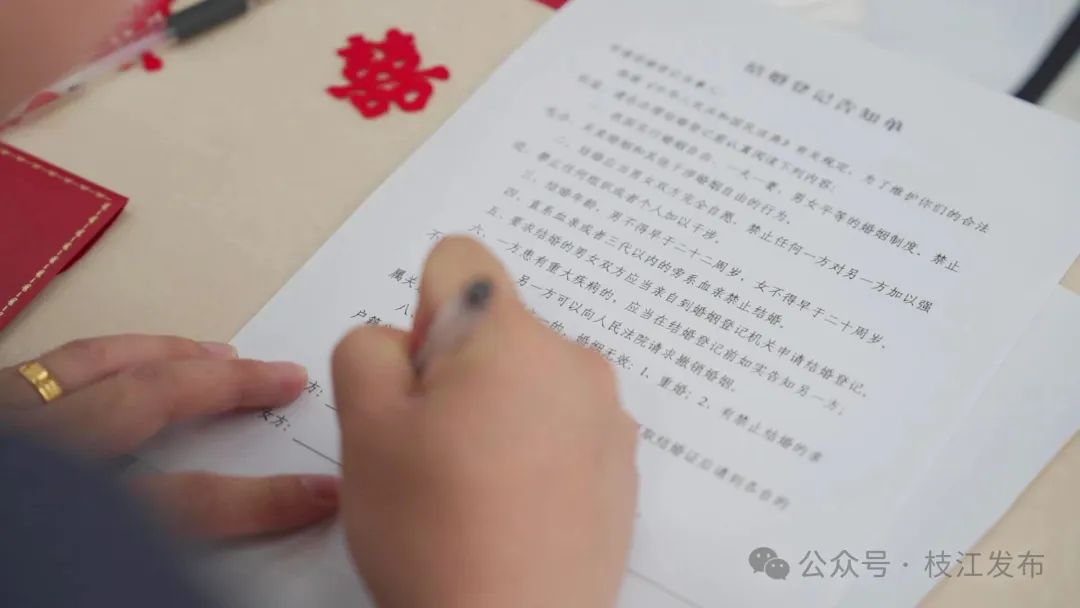 囍
结婚登记告知单
根据《中华人民共和国民法典》有关规定，为了维护你们的合法
权益，请在办理结婚登记前认真阅读下列内容：
一、我国实行婚姻自由、一夫一妻、男女平等的婚姻制度。禁止
包办、买卖婚姻和其他干涉婚姻自由的行为。
二、结婚应当男女双方完全自愿，禁止任何一方对另一方加以强
迫，禁止任何组织或者个人加以干涉。
三、结婚年龄，男不得早于二十二周岁，女不得早于二十周岁。
四、直系血亲或者三代以内的旁系血亲禁止结婚。
五、要求结婚的男女双方应当亲自到婚姻登记机关申请结婚登记。
六、一方患有重大疾病的，应当在结婚登记前如实告知另一方；
不
另一方可以向人民法院请求撤销婚姻。
一的，婚姻无效：1、重婚；2、有禁止结婚的亲
属关
八、
取结婚证后请到各自的
户籍
方：
女方：
公众号 · 枝江发布